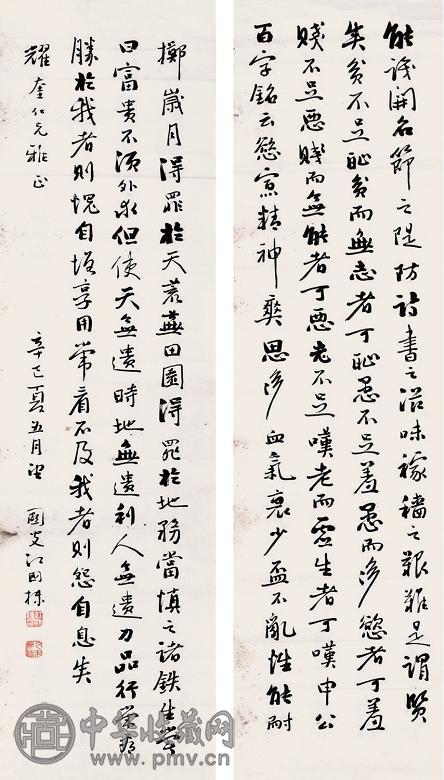 能識開名節之隄防詩書之滋味稼穡之艱難是謂賢
矣貧不足恥貧而無志者可恥愚不足羞愚而多慾者可羞
賤不足惡賤而無能者可惡老不足嘆老而虛生者可嘆申公
百字銘云慾寡精神爽思多血氣衰少盃不亂性能耐
擲歲月得罪於天荒蕪田園得罪於地務當慎之諸鐵生嘗
曰富貴不須外求但使天無遺時地無遺利人無遺力品行常看
勝於我者則愧自增享用常看不及我者則怨自息矣
耀奎仁兄雅正
辛巳夏五月望 江國棟
中华收藏网
www.pmv.cn